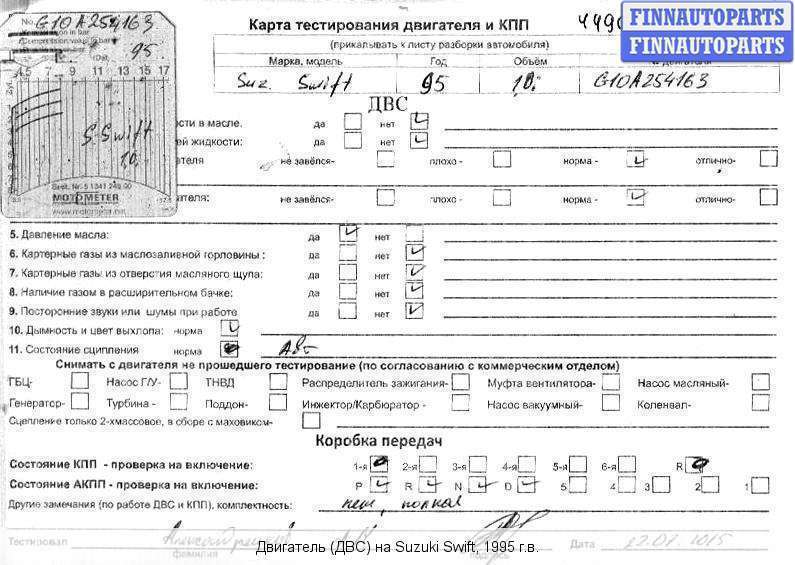 No. G10A254163
95
4,5 7 9 11 13 15 17
S.Swift
1.0.
Best. Nr. 5 1341 249 00
MOTOMETER
Карта тестирования двигателя и КПП
FINNAUTOPARTS
FINNAUTOPARTS
(прикалывать к листу разборки автомобиля)
Марка, модель Год Объём
Suz. Swift 95 1.0. G10A254163
ДВС
сти в масле. да нет
ей жидкости: да нет
ателя не завёлся- плохо - норма - отлично-
ателя: не завёлся- плохо - норма - отлично-
5. Давление масла: да нет
6. Картерные газы из маслозаливной горловины : да нет
7. Картерные газы из отверстия масляного щупа: да нет
8. Наличие газом в расширительном бачке: да нет
9. Посторонние звуки или шумы при работе да нет
10. Дымность и цвет выхлопа: норма
11. Состояние сцепления норма
Снимать с двигателя не прошедшего тестирование (по согласованию с коммерческим отделом)
ГБЦ- Насос Г/У- ТНВД Распределитель зажигания- Муфта вентилятора- Насос масляный-
Генератор- Турбина - Поддон- Инжектор/Карбюратор - Насос вакуумный- Коленвал-
Сцепление только 2-хмассовое, в сборе с маховиком-
Коробка передач
Состояние КПП - проверка на включение: 1-я 2-я 3-я 4-я 5-я 6-я R
Состояние АКПП - проверка на включение: P R N D 5 4 3 2 1
Другие замечания (по работе ДВС и КПП), комплектность:
Тестировал
фамилия
Дата
Двигатель (ДВС) на Suzuki Swift, 1995 г.в.